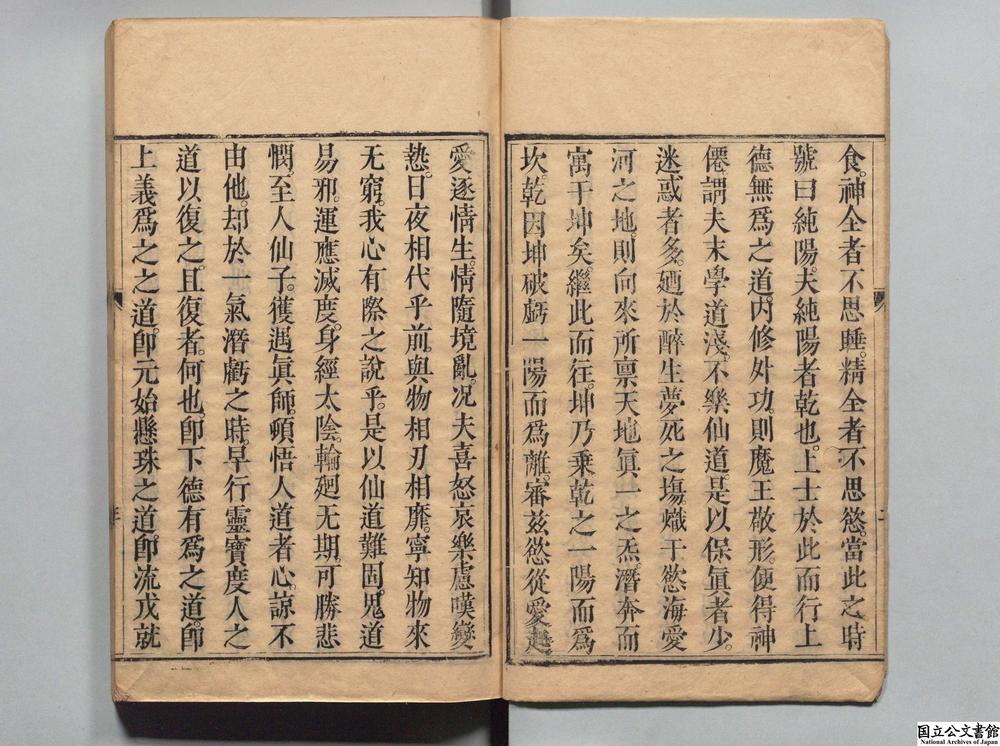 食。神全者不思睡。精全者不思慾。當此之時
號曰純陽。夫純陽者乾也。上士於此而行上
德無爲之道。內修外功。則魔王敬形。便得神
僊。謂夫末學道淺。不樂仙道。是以保眞者少。
迷惑者多。廼於醉生夢死之塲熾于慾海愛
河之地。則向來所禀天地眞一之炁。潛奔而
寓于坤矣。繼此而往。坤乃乘乾之一陽而爲
坎。乾因坤破虧一陽而爲離。審茲慾從愛起。
愛逐情生。情隨境亂。况夫喜怒哀樂慮嘆變
慹。日夜相代乎前與物相刃相靡。寧知物來
无窮。我心有際之說乎。是以仙道難固。鬼道
易邪。運應滅度。身經太陰。輪廻无期。可勝悲
憫。至人仙子。獲遇眞師。頓悟人道者心。諒不
由他。却於一氣潛虧之時。早行靈寶度人之
道以復之。且復者。何也。卽下德有爲之道。卽
上義爲之之道。卽元始懸珠之道。卽流戊就
国立公文書館
National Archives of Japan